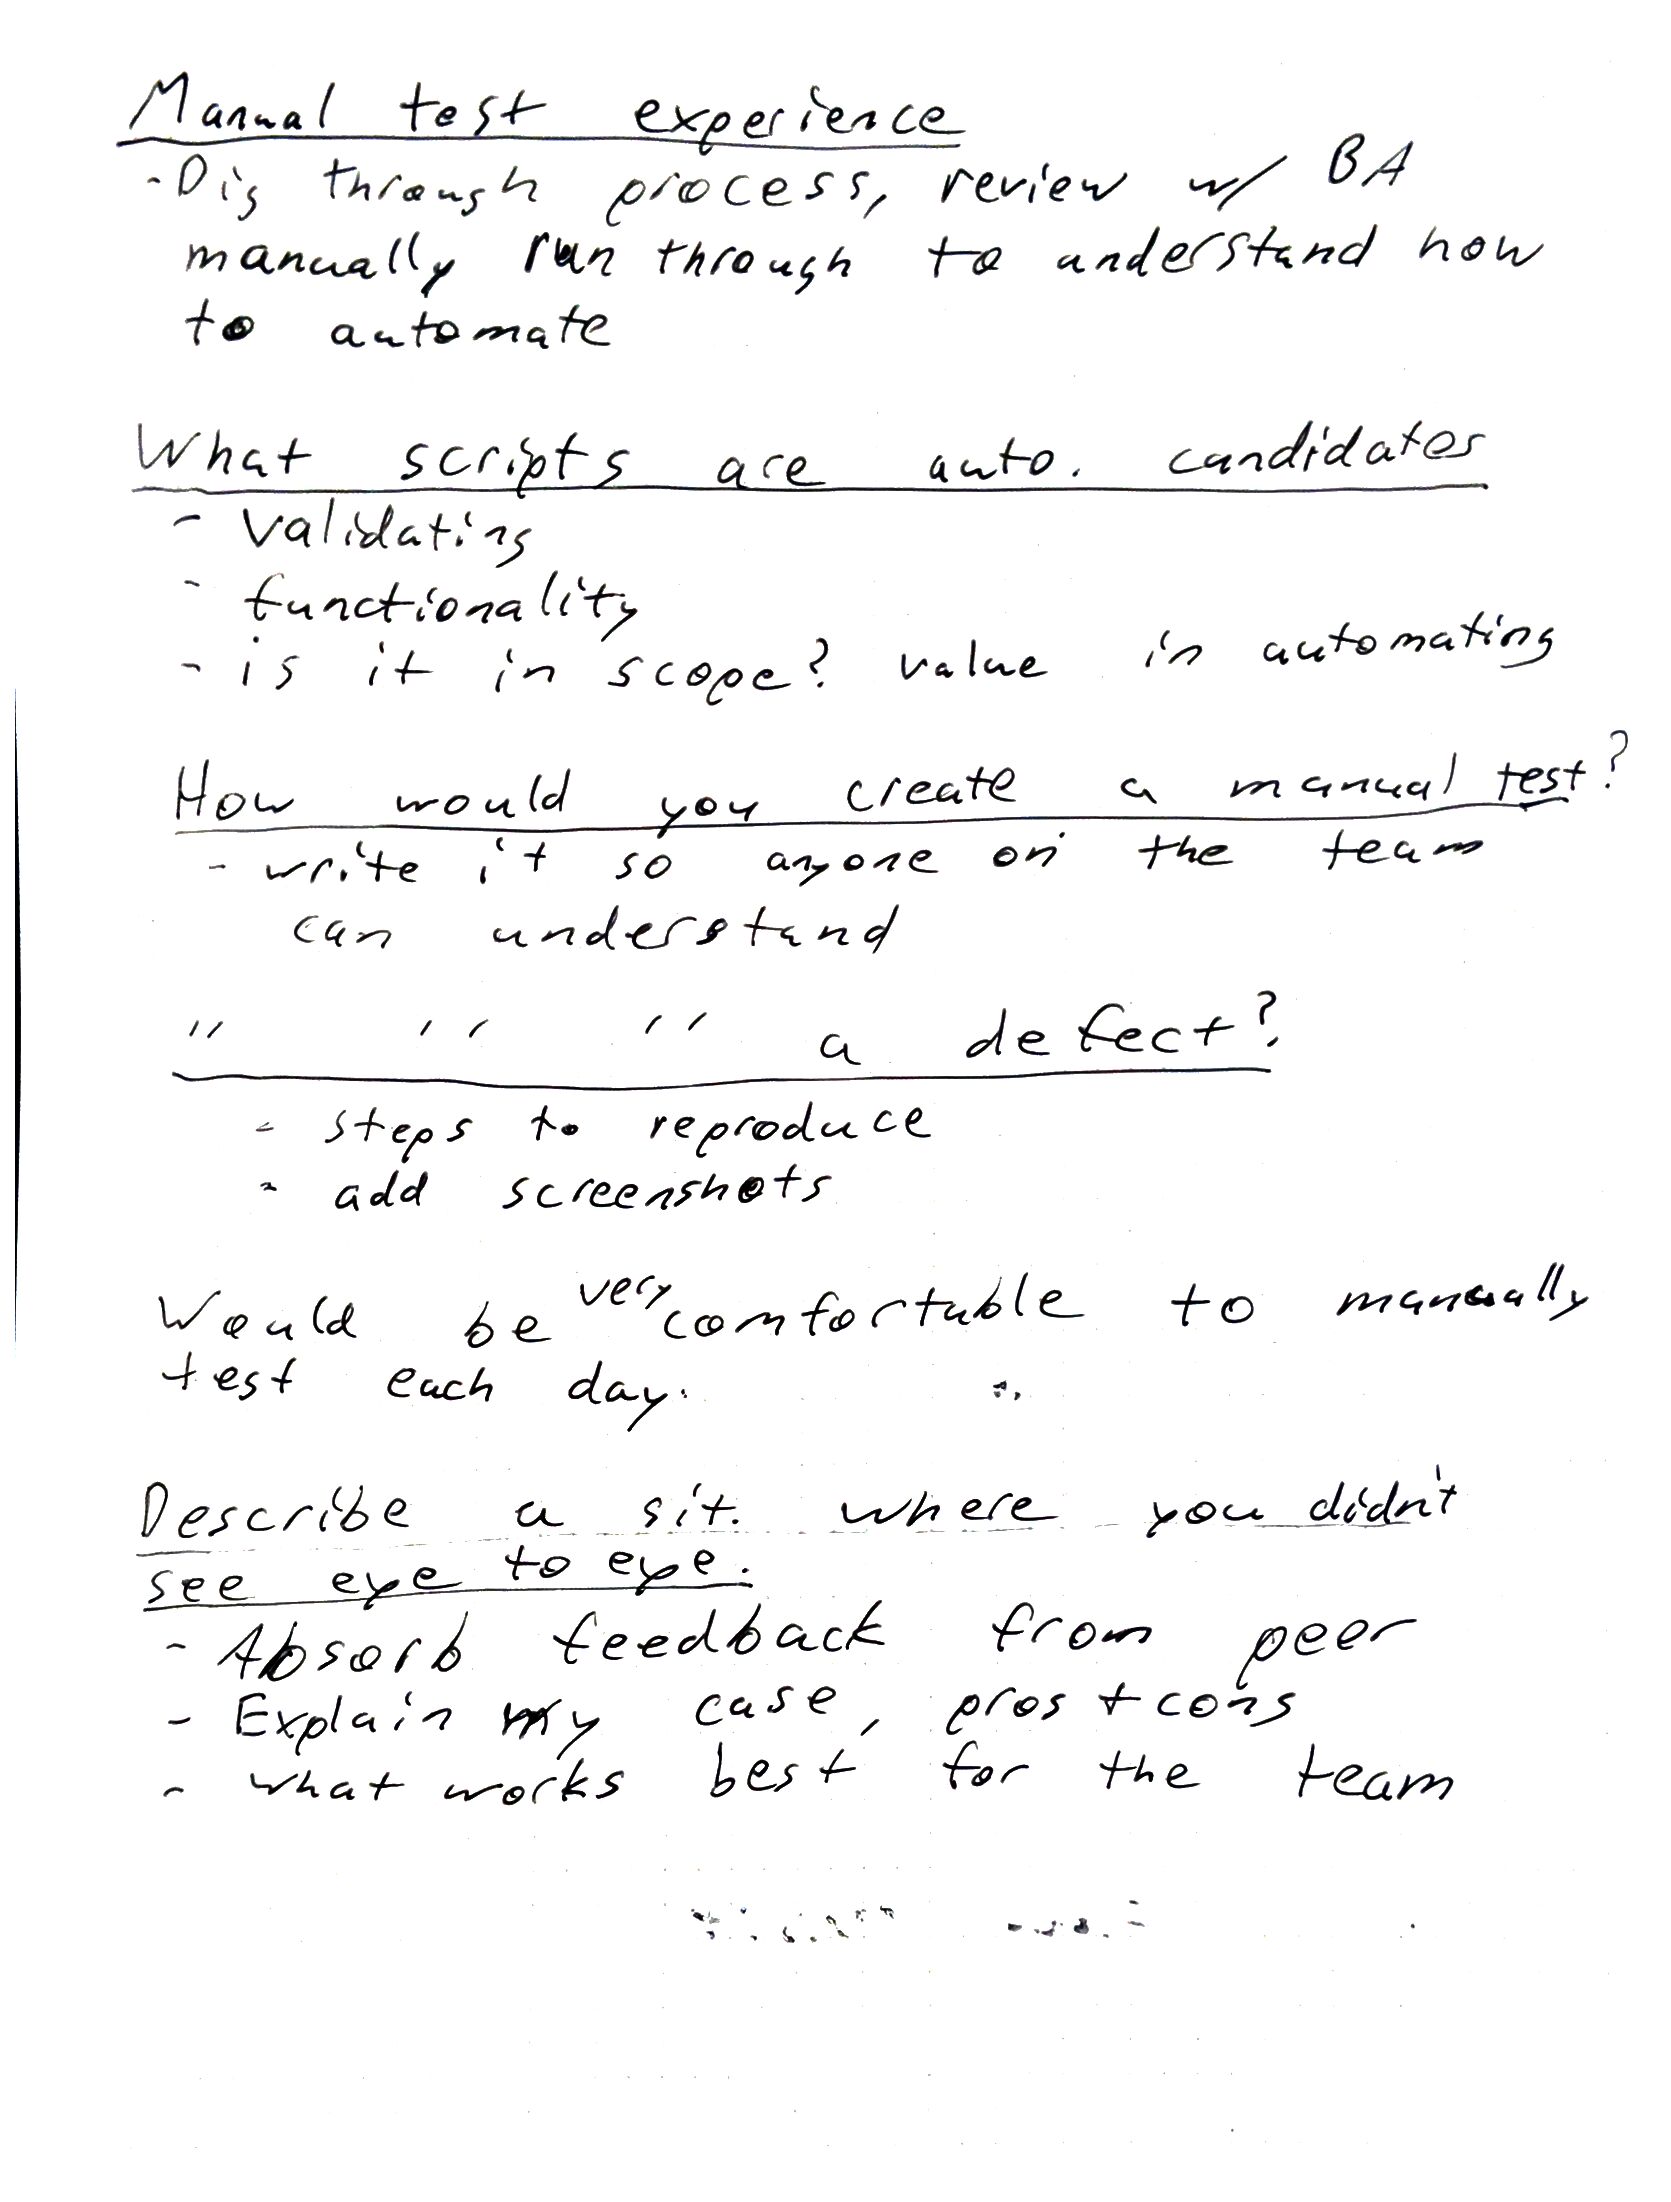 Manual test experience
- Dig through process, review w/ BA
manually run through to understand how
to automate
What scripts are auto. candidates
- validating
- functionality
- is it in scope? value in automating
How would you create a manual test?
- write it so anyone on the team
can understand
" " " a defect?
- steps to reproduce
- add screenshots
Would be very comfortable to manually
test each day.
Describe a sit. where you didn't
see eye to eye.
- Absorb feedback from peer
- Explain my case, pros + cons
- what works best for the team